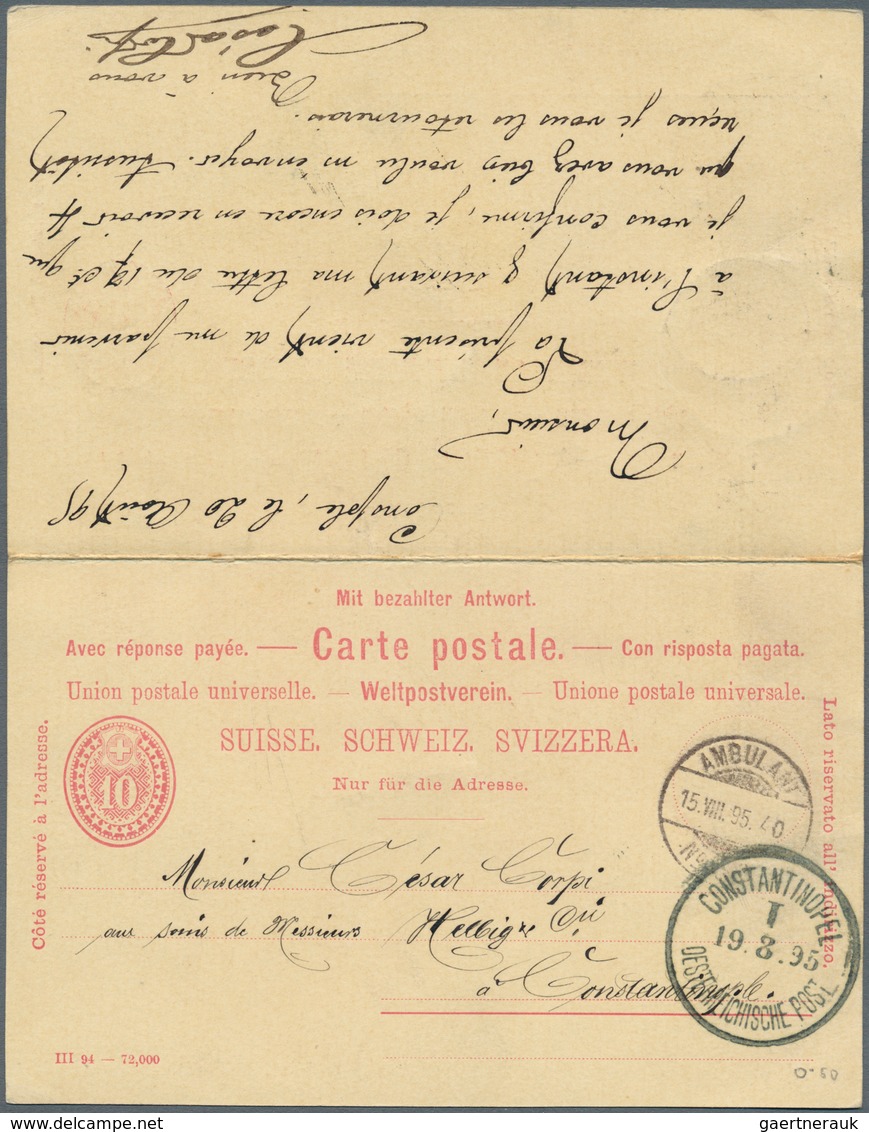 Consple, le 20 Août 95
Monsieur,
La présente vient de me parvenir
à l'instant & suivant ma lettre du 17 ct que
je vous confirme, je dois encore en recevoir 4
que vous avez bien voulu m'envoyer. Aussitôt
reçues je vous les retournerai.
Bien à vous
Mit bezahlter Antwort.
Avec réponse payée. — Carte postale. — Con risposta pagata.
Union postale universelle. — Weltpostverein. — Unione postale universale.
SUISSE. SCHWEIZ. SVIZZERA.
Nur für die Adresse.
Côté réservé à l'adresse.
Lato riservato all' indirizzo.
10
AMBULANT
15.VIII.95.
No
CONSTANTINOPEL
I
19.8.95
OESTERREICHISCHE POST
Monsieur César Corpi
aux soins de Messieurs Helbig
à Constantinople.
III 94 — 72,000
0-50
gaertnerauk